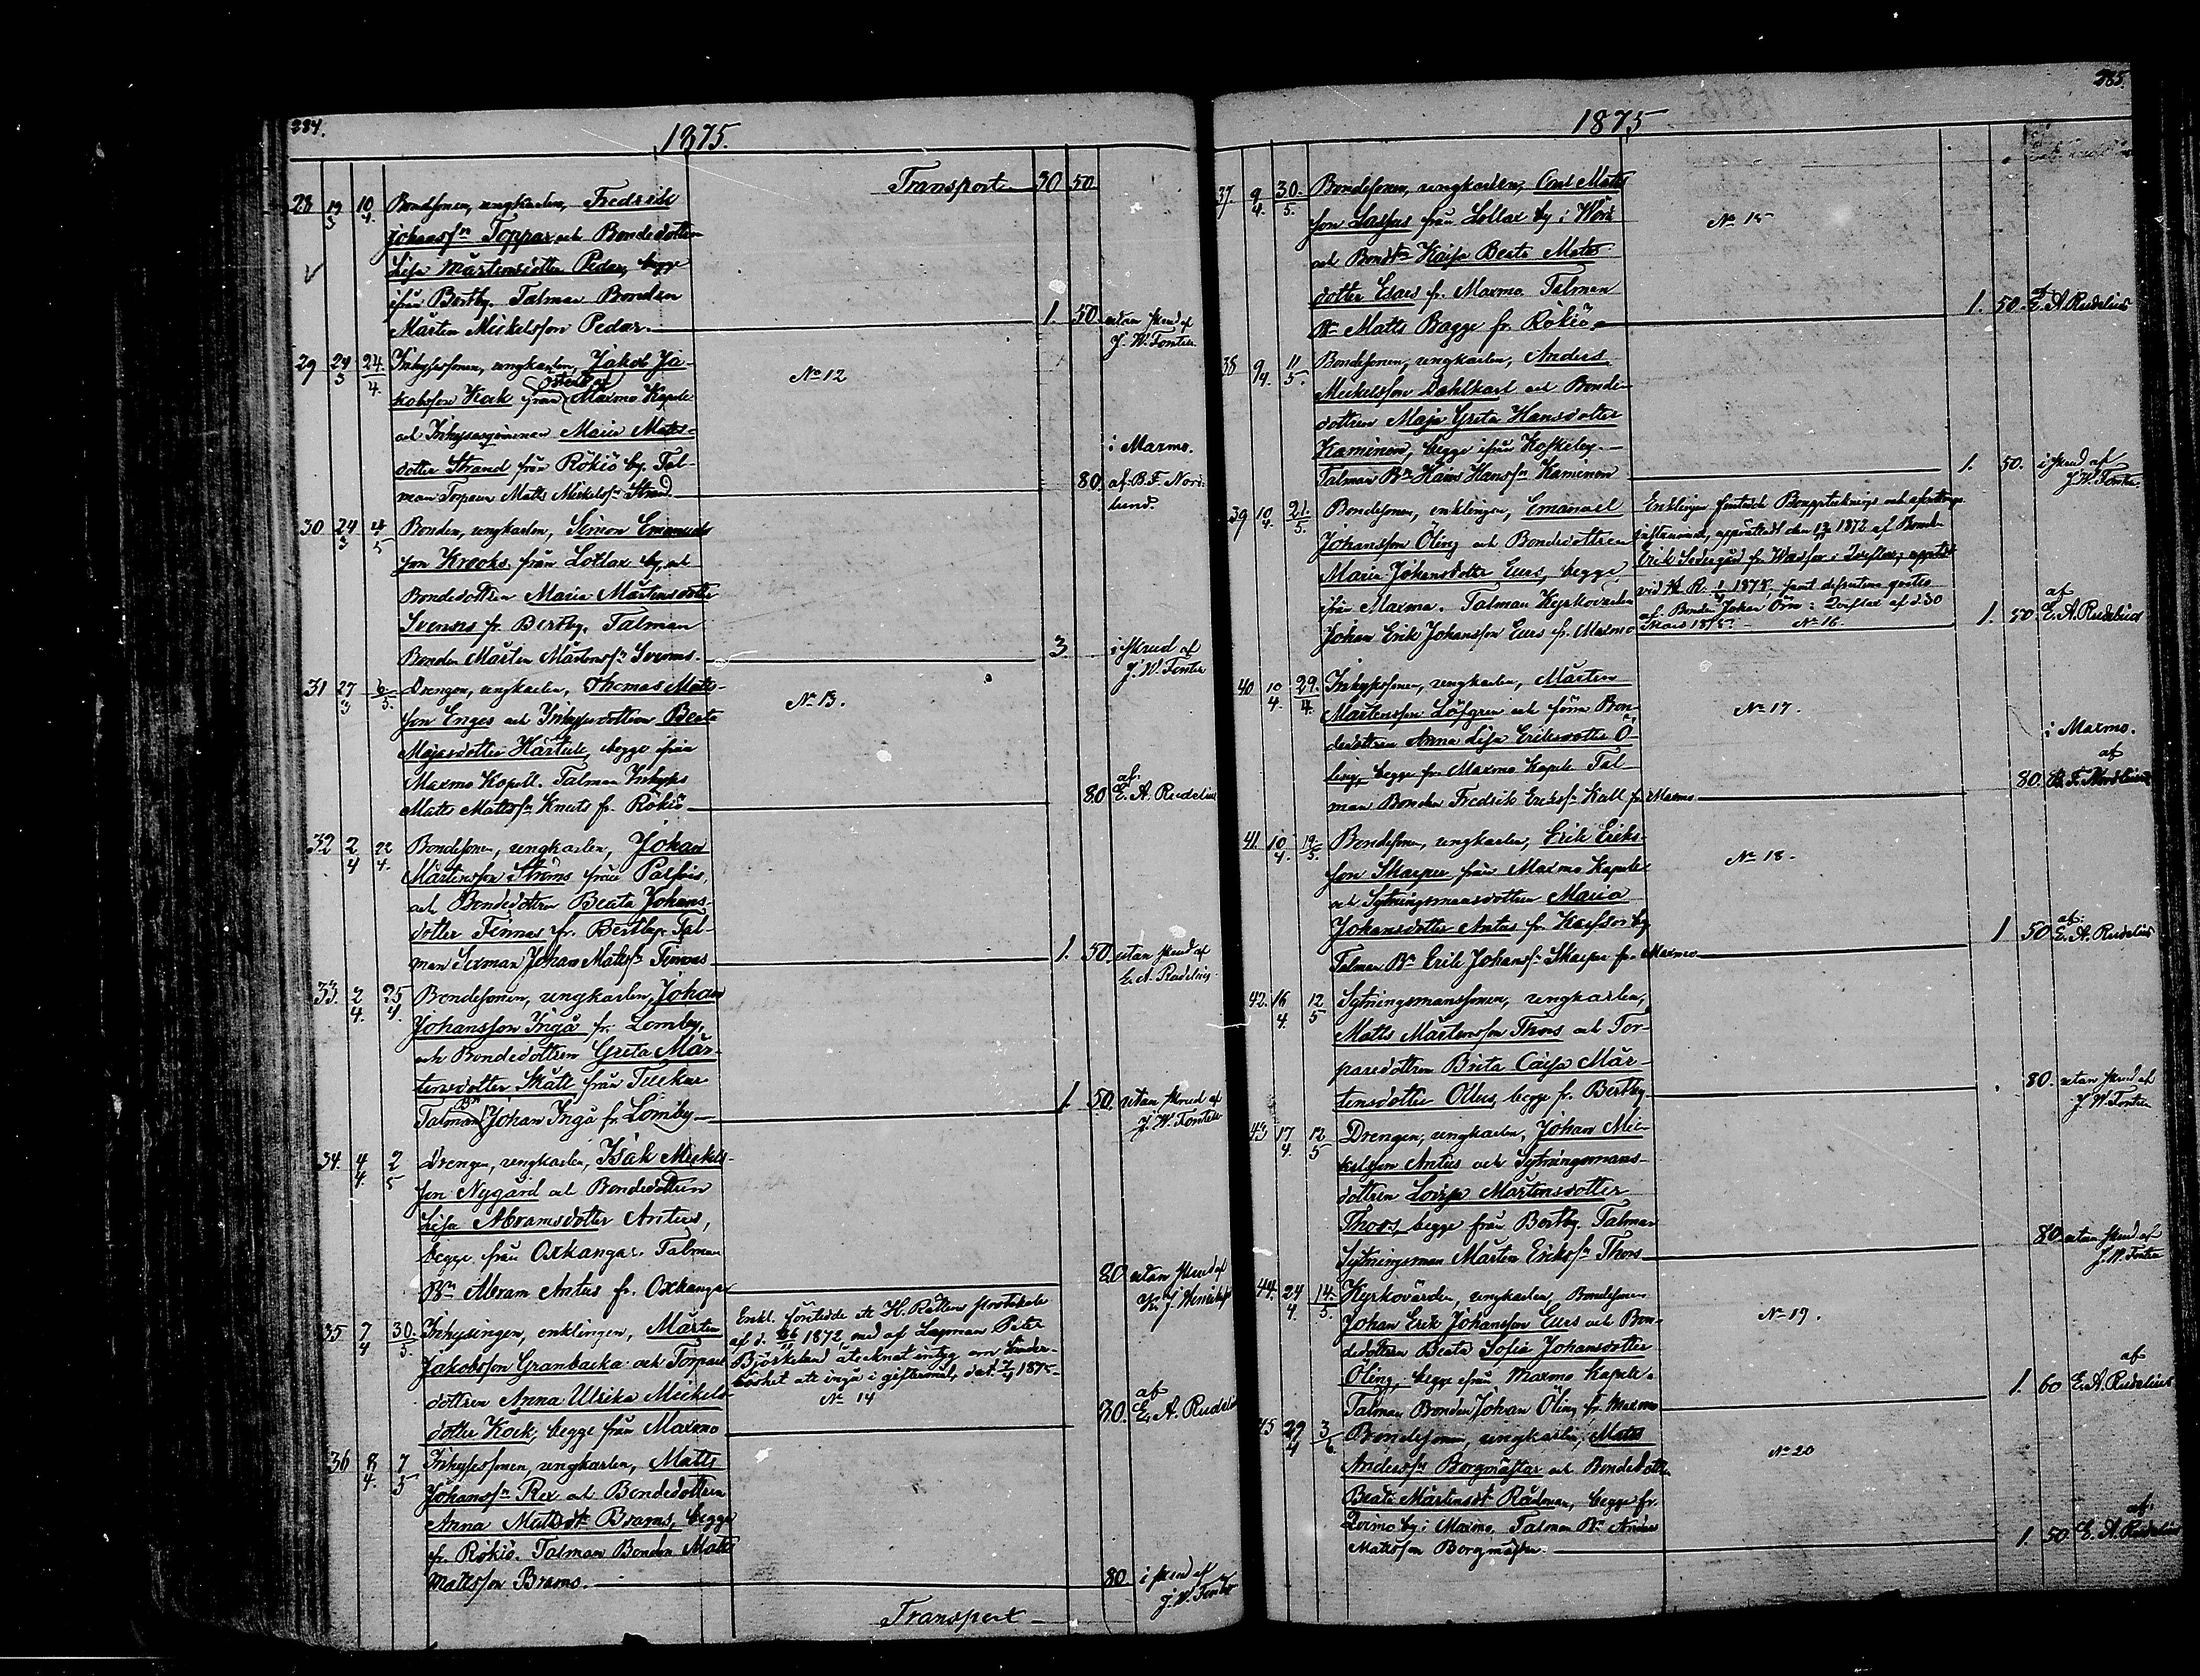 284.
1875.
Transport 30 50
28 19/3 10/4 Bondesonen, ungkarlen, Fredrik
Johansson Toppar och Bondedottren
Lisa Mårtensdotter Pedar, begge
ifrån Bertby. Talman Bonden
Mårten Mickelsson Pedar. 1. 50. utan skrud af
J. W. Fontell
29 24/3 24/4 Inhysessonen, ungkarlen, Jakob Ja-
kobsson Kock från Maxmo Kapell
och Inhysesqvinnan Maria Matts-
dotter Strand från Rökiö by. Tal-
man Torparen Matts Mickelss: Strand.
No 12
i Maxmo.
80. af B. F. Nord-
lund.
30 24/3 4/5 Bonden, ungkarlen, Simon Emanuels
son Krooks från Lotlax by och
Bondedottren Maria Mårtensdotter
Svenns fr. Bertby. Talman
Bonden Mårten Mårtenss: Svenns. 3. i skrud af
J. W. Fontell
31 27/3 6/5 Drengen, ungkarlen, Thomas Matts-
son Enges och Inhysesdottren Beata
Majasdotter Härtull, begge ifrån
Maxmo Kapell. Talman Inhyses
Matts Mattss: Knuts fr. Rökiö
No 13.
80 af E. A. Rudelius
32 2/4 22/4 Bondesonen, ungkarlen, Johan
Mårtensson Ströms från Palfvis,
och Bondedottren Beata Johans-
dotter Finnas fr. Bertby. Tal-
man Sexman Johan Matss: Finnas 1. 50. utan skrud af
E. A. Rudelius
33. 2/4 25/4 Bondesonen, ungkarlen, Johan
Johansson Ingå fr. Lomby,
och Bondedottren Greta Mår-
tensdotter Skatt från Tuckur
Talman Bn Johan Ingå fr. Lomby 1. 50. utan skrud af
J. W. Fontell
34. 4/4 2/5 Drengen, ungkarlen, Isak Mickels-
son Nygård och Bondedottren
Lisa Abramsdotter Antus,
begge från Oxkangar. Talman
Bn Abram Antus fr. Oxkangar 80 utan skrud af
35 7/4 30/5 Inhysingen, enklingen, Mårten
Jakobsson Granbacka och Torpare
dottren Anna Ulrika Mickels-
dotter Kock, begge från Maxmo
Enkl. företedde ett H. Rättens protokoll
af d. 26/11 1872 med af Länsman Peter
Björklund åtecknat intyg om hinder-
löshet att ingå i giftermål, dat. 1875.
No 14
80. af
E. A. Rudelius
36 8/4 7/5 Inhysessonen, ungkarlen, Matts
Johanss: Rex och Bondedottren
Anna Mattsdt Brams, begge
fr. Rökiö. Talman Bonden Matts
Mattsson Brams. 80. i skrud af
J. W. Fontell
Transport
285.
1875
37. 9/4 30/5 Bondesonen, ungkarlen, Carl Matts
son Lasfas från Lotlax by i Wörå
och Bondtr Kaisa Beata Matts
dotter Esars fr. Maxmo Talman
Bn Matts Bagge fr. Rökiö.
No 15
1. 50. af E. A. Rudelius
38 9/4 11/5 Bondesonen, ungkarlen, Anders
Mickelsson Dahlkarl och Bonde-
dottren Maja Greta Hansdotter
Kaminen, begge ifrån Koskeby.
Talman Bn Hans Hanss: Kaminen 1. 50. i skrud af
J. W. Fontell
39 10/4 21/5 Bondesonen, enklingen, Emanuel
Johansson Öling och Bondedottren
Maria Johansdotter Eurs, begge
ifrån Maxmo. Talman Kyrkovärden
Johan Erik Johansson Eurs fr. Maxmo
Enklingen företedde Bouppteknings och afvittrings
instrument, upprättadt den 1872 af Bonden
vid H. R. 1873,
af Bonden Johan Örn i Qveflax af d. 30
Mars 1875. No 16.
1. 50. af E. A. Rudelius
40 10/4 29/4 Inhysessonen, ungkarlen, Mårten
Mårtensson Löfgren och förra Bon-
dedottren Anna Lisa Eriksdotter Ö-
ling, begge fr. Maxmo Kapell Tal-
man Bonden Fredrik Erikss: Kall fr. Maxmo
No 17.
i Maxmo.
af
80. B. F. Nordlund
41. 10/4 19/5 Bondesonen, ungkarlen, Erik Eriks-
son Skarper från Maxmo Kapell
och Sytningsmansdottren Maria
Johansdotter Antus fr. Kaitsor by
Talman Bn Erik Johanss: Skarper fr. Maxmo
No 18.
1 50 af E. A. Rudelius
42. 16/4 12/5 Sytningsmanssonen, ungkarlen,
Matts Mårtensson Thors och Tor-
paredottren Brita Caisa Mår-
tensdotter Ollus, begge fr. Bertby. 80. utan skrud af
J. W. Fontell
43 17/4 12/5 Drengen, ungkarlen, Johan Mic-
kelsson Antus och Sytningsmans-
dottren Lovisa Mårtensdotter
Thors, begge från Bertby. Talman
Sytningsman Mårten Erikss: Thors 80. utan skrud af
J. W. Fontell
44. 24/4 14/5 Kyrkovärden, ungkarlen, Bondesonen
Johan Erik Johansson Eurs och Bon-
dedottren Beata Sofia Johansdotter
Öling, begge ifrån Maxmo Kapell.
Talman Bonden Johan Öling fr. Maxmo
No 19.
1. 60 af E. A. Rudelius
45 29/4 3/6 Bondesonen, ungkarlen, Matts
Anderss: Borgmästar och Bondedottren
Beata Mårtensdt Rådman, begge fr.
Qvimo by i Maxmo. Talman Bn Anders
Mattsson Borgmästar.
No 20
1. 50. af E. A. Rudelius